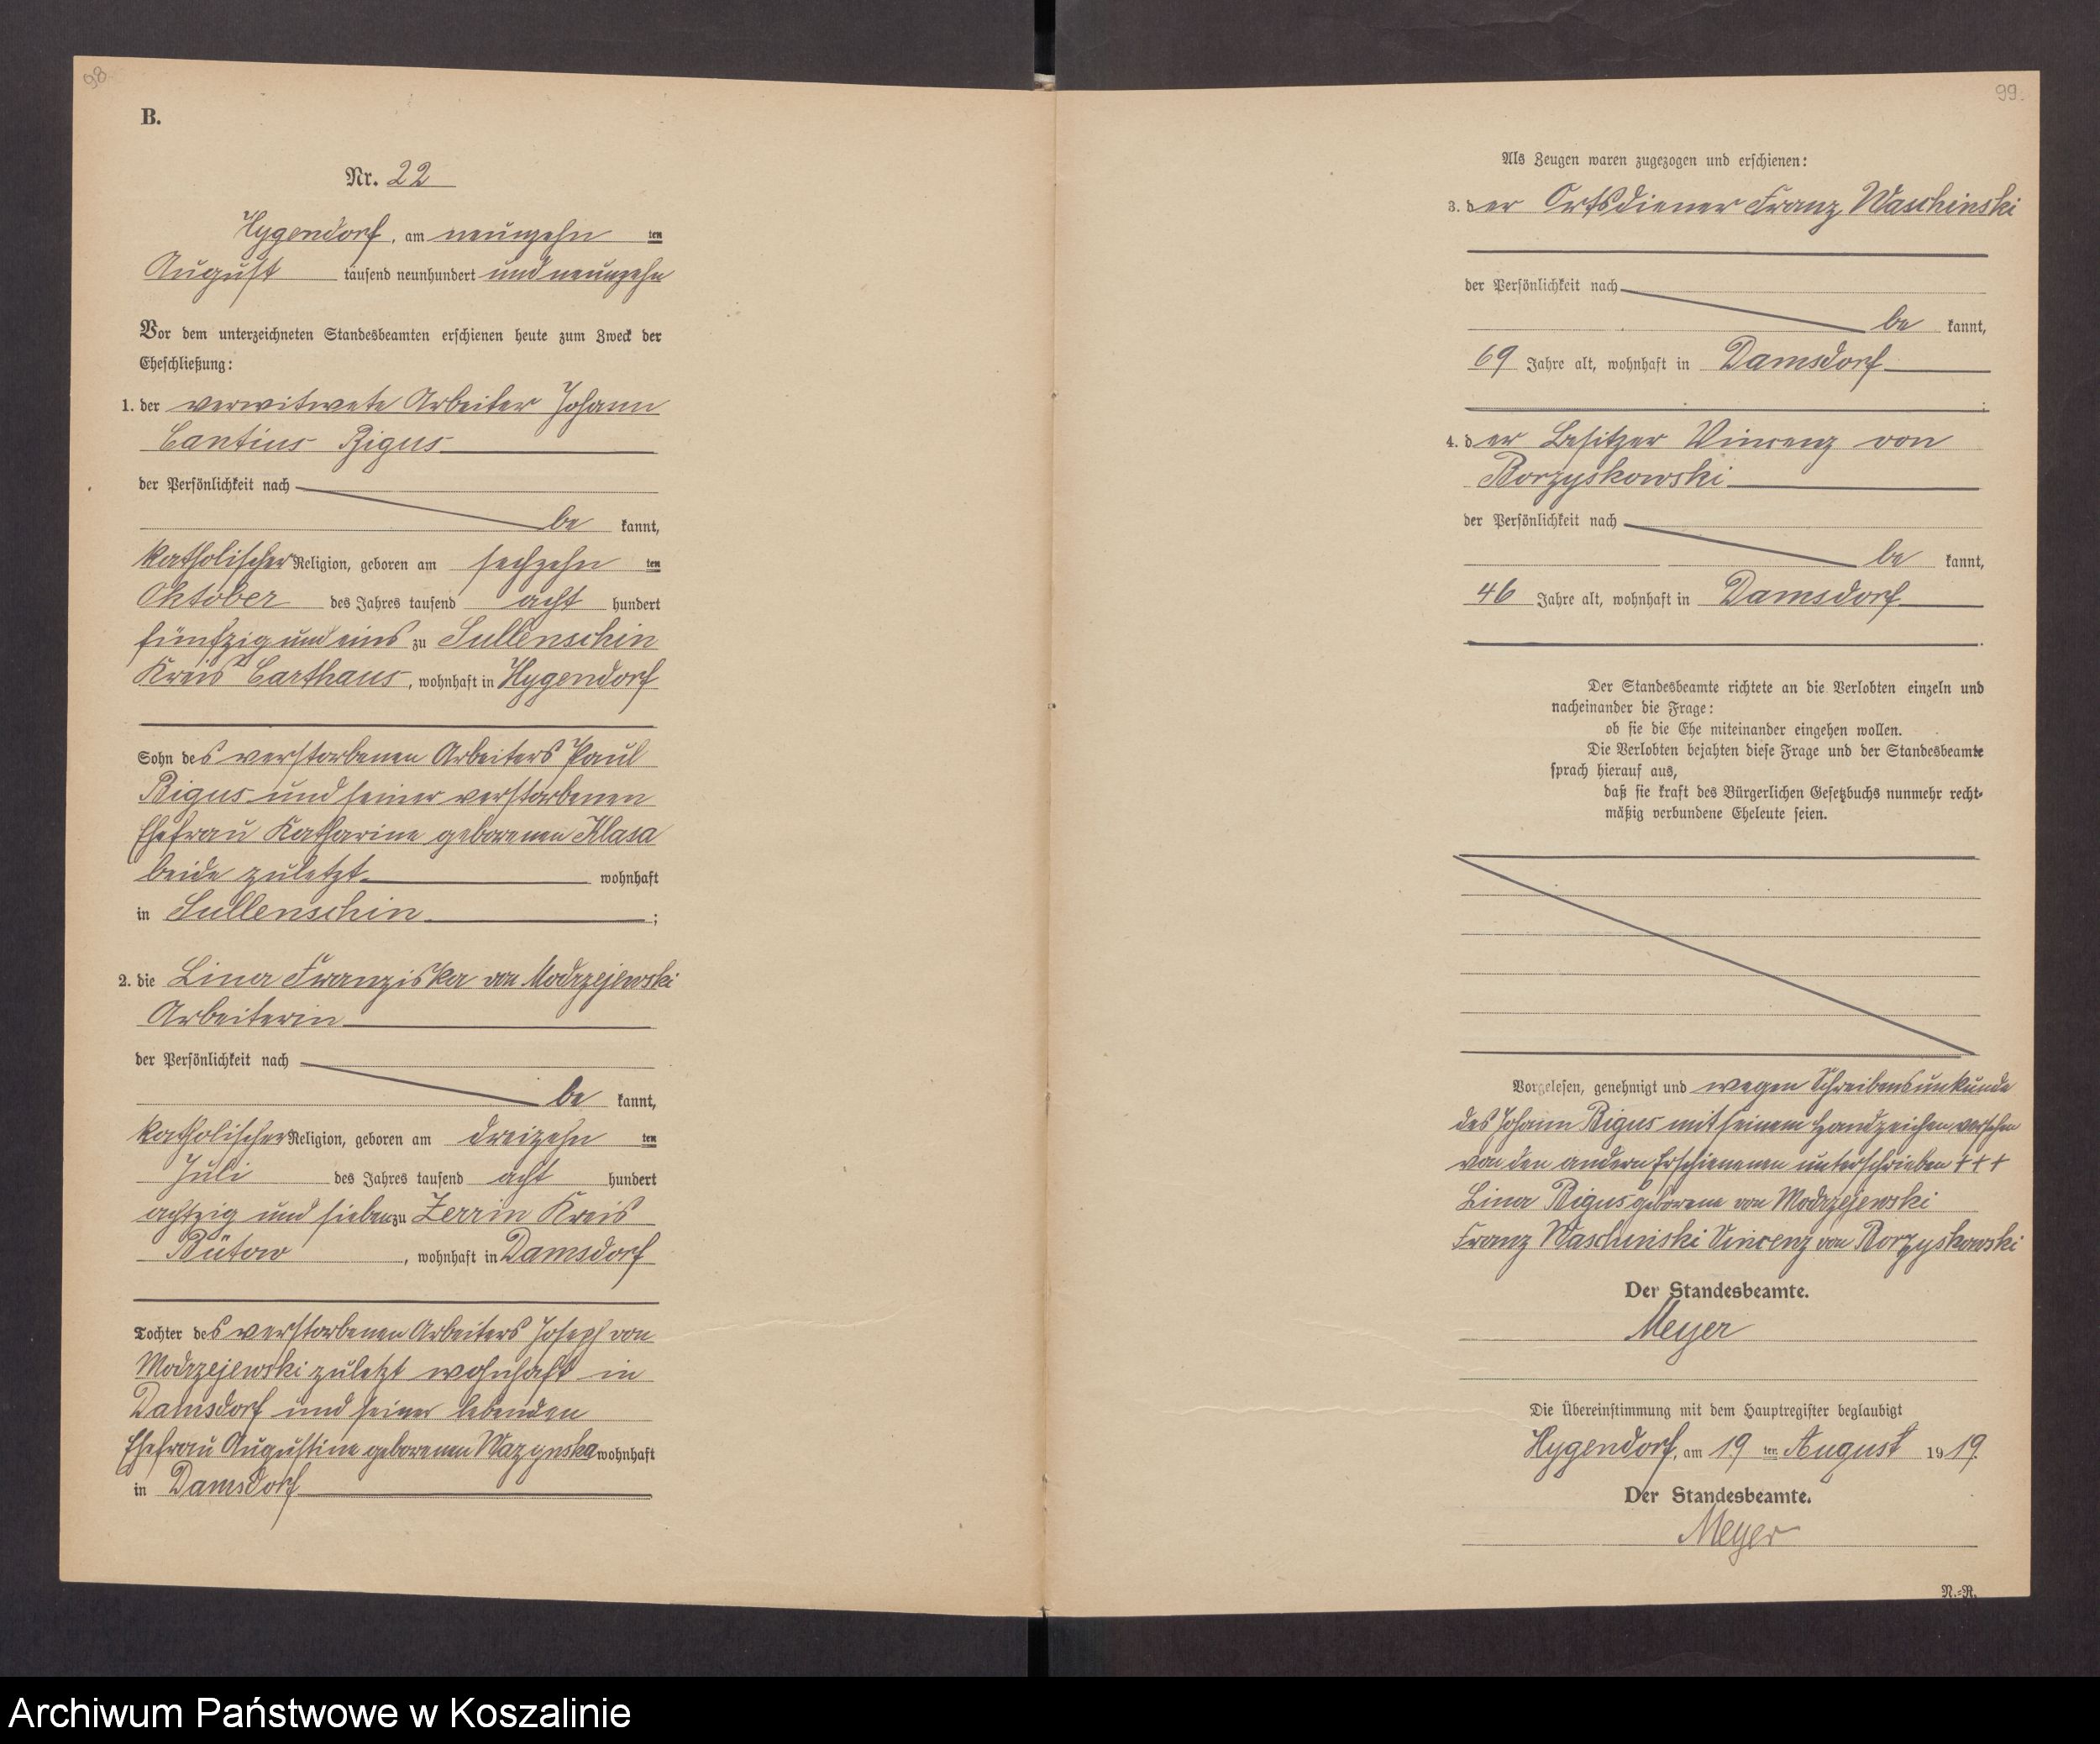 98
B.
Nr. 22
Hygendorf, am neunzehn ten
August tausend neunhundert und neunzehn
Vor dem unterzeichneten Standesbeamten erschienen heute zum Zweck der
Eheschließung:
1. der verwitwete Arbeiter Johann
Cantius Bigus
der Persönlichkeit nach
be kannt,
katholischer Religion, geboren am sechzehn ten
Oktober des Jahres tausend acht hundert
fünfzig und eins zu Sullenschin
Kreis Carthaus, wohnhaft in Hygendorf
Sohn des verstorbenen Arbeiters Paul
Bigus und seiner verstorbenen
Ehefrau Katharine geborenen Klasa
beide zuletzt wohnhaft
in Sullenschin ;
2. die Lina Franziska von Modrzejewski
Arbeiterin
der Persönlichkeit nach
be kannt,
katholischer Religion, geboren am dreizehn ten
Juli des Jahres tausend acht hundert
achtzig und sieben zu Zerrin Kreis
Bütow, wohnhaft in Damsdorf
Tochter des verstorbenen Arbeiters Joseph von
Modrzejewski zuletzt wohnhaft in
Damsdorf und seiner lebenden
Ehefrau Augustine geborenen Wazynska wohnhaft
in Damsdorf
99.
Als Zeugen waren zugezogen und erschienen:
3. der Ortsdiener Franz Waschinski
der Persönlichkeit nach
be kannt,
69 Jahre alt, wohnhaft in Damsdorf
;
4. der Besitzer Vincenz von
Borzyskowski
der Persönlichkeit nach
be kannt,
46 Jahre alt, wohnhaft in Damsdorf
.
Der Standesbeamte richtete an die Verlobten einzeln und
nacheinander die Frage:
ob sie die Ehe miteinander eingehen wollen.
Die Verlobten bejahten diese Frage und der Standesbeamte
sprach hierauf aus,
daß sie kraft des Bürgerlichen Gesetzbuchs nunmehr recht-
mäßig verbundene Eheleute seien.
Vorgelesen, genehmigt und wegen Schreibensunkunde
des Johann Bigus mit seinem Handzeichen versehen
von den andern Erschienenen unterschrieben + + +
Lina Bigus geborene von Modrzejewski
Franz Waschinski Vincenz von Borzyskowski
Der Standesbeamte.
Meyer
Die Übereinstimmung mit dem Hauptregister beglaubigt
Hygendorf, am 19 ten August 1919.
Der Standesbeamte.
Meyer
N.-R.
Archiwum Państwowe w Koszalinie